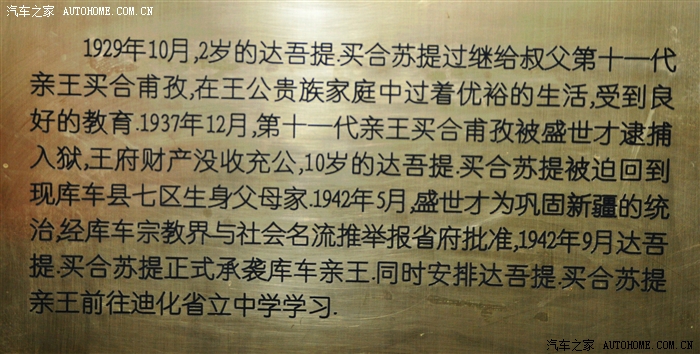 汽车之家 AUTOHOME.COM.CN
1929年10月,2岁的达吾提.买合苏提过继给叔父第十一代
亲王买合甫孜,在王公贵族家庭中过着优裕的生活,受到良
好的教育.1937年12月,第十一代亲王买合甫孜被盛世才逮捕
入狱,王府财产没收充公,10岁的达吾提.买合苏提被迫回到
现库车县七区生身父母家.1942年5月,盛世才为巩固新疆的统
治,经库车宗教界与社会名流推举报省府批准,1942年9月达吾
提.买合苏提正式承袭库车亲王.同时安排达吾提.买合苏提
亲王前往迪化省立中学学习.
汽车之家 AUTOHOME.COM.CN